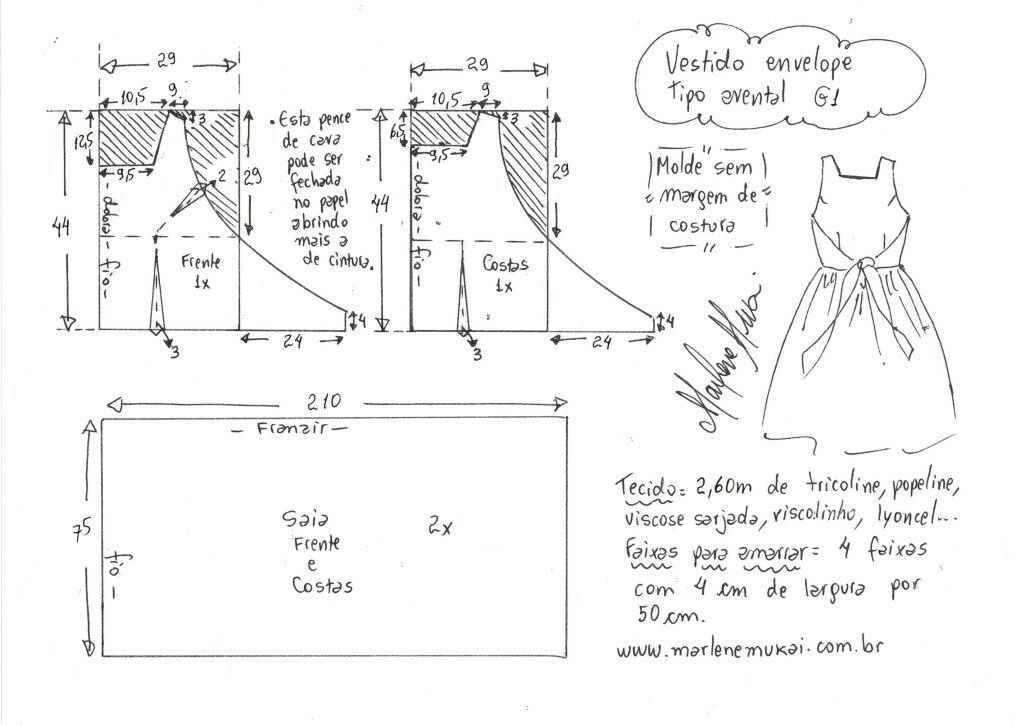 Vestido envelope
Tipo avental G1
Molde sem
margem de
costura
29
10,5
9
3
12,5
9,5
2
29
44
dobra - fio
Frente
1x
3
24
4
. Esta pence
de cava
pode ser
fechada
no papel
abrindo
mais a
de cintura.
29
10,5
9
3
6,5
9,5
29
44
dobra - fio -
Costas
1x
3
24
4
Marlene Mukai.
210
- Franzir -
75
fio -
Saia
Frente
e
Costas
2x
Tecido = 2,60m de tricoline, popeline,
viscose sarjada, viscolinho, lyoncel...
Faixas para amarrar = 4 faixas
com 4 cm de largura por
50 cm.
www.marlenemukai.com.br